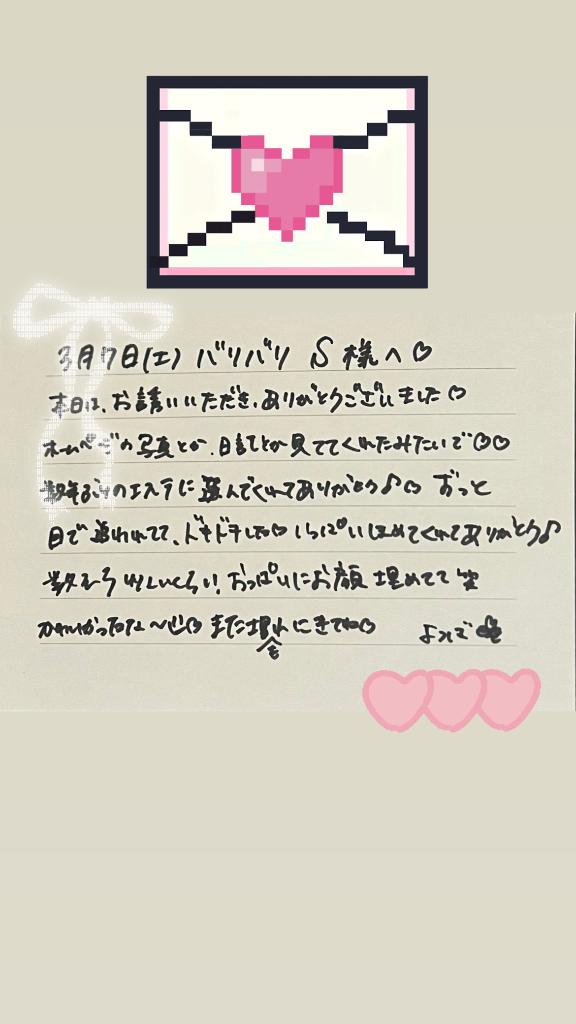 3月7日(土) バリバリ S 様へ♡
本日は、お誘いいただき、ありがとうございました♡
ホームページの写真とか、日記とか見ててくれたみたいで♡♡
数年ぶりのエステに選んでくれてありがとう♪♡ ずっと
目で追われてて、ドキドキした♡ いっぱいほめてくれてありがとう♪
おっぱいにお顔埋めてて笑
かわいかったな〜 また埋もれにきてね♡